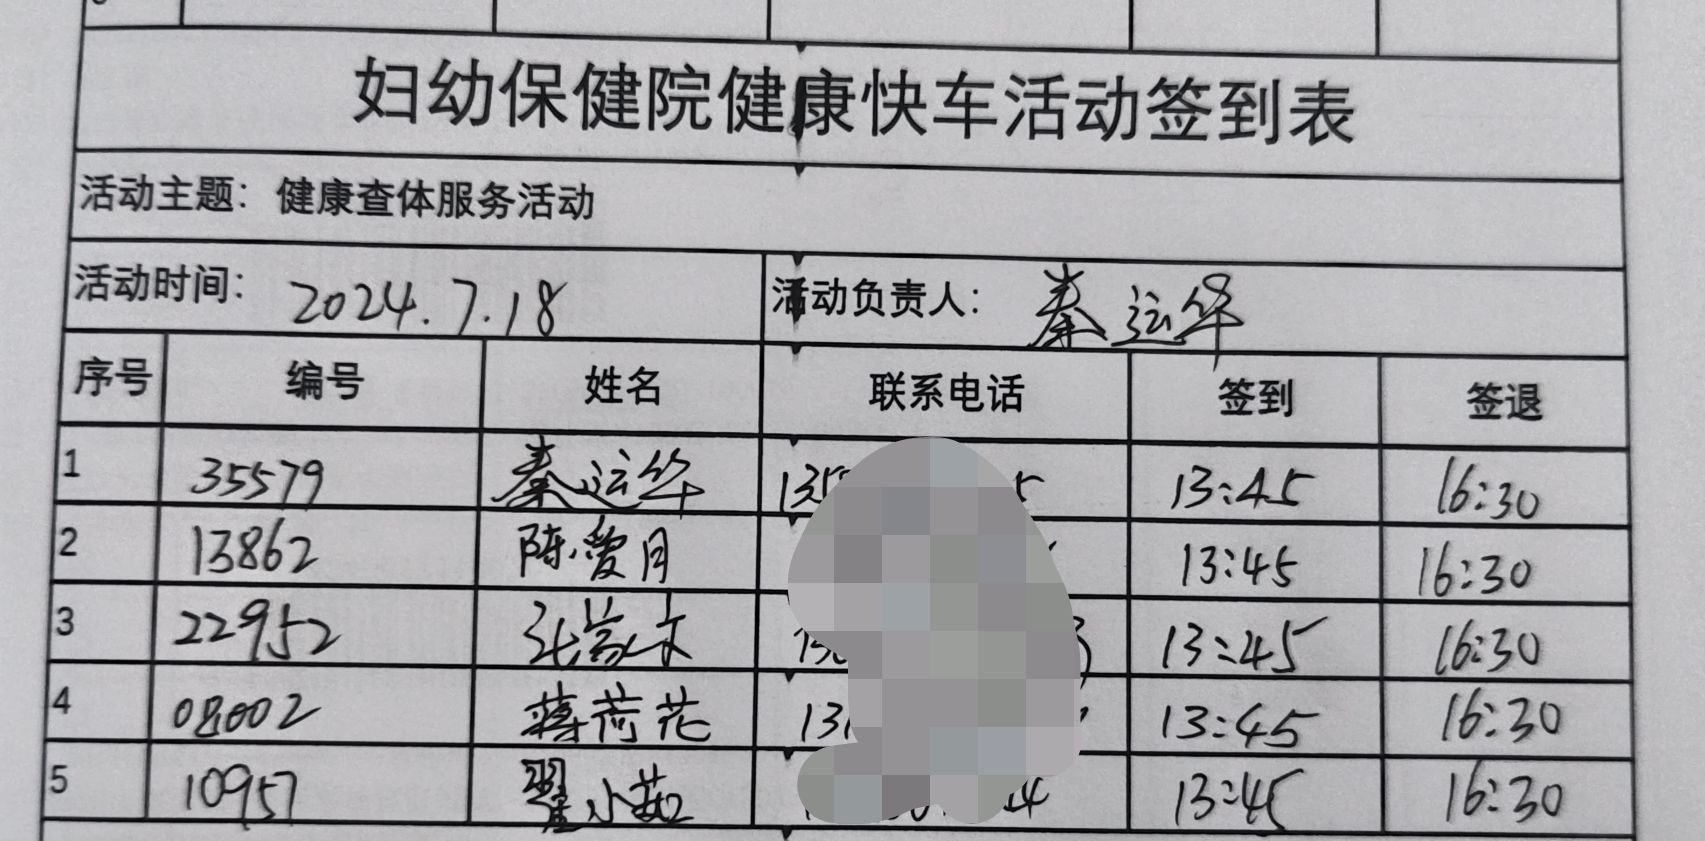 妇幼保健院健康快车活动签到表
活动主题：健康查体服务活动
活动时间：2024.7.18 活动负责人：秦运华
序号 编号 姓名 联系电话 签到 签退
1 35579 秦运华 13:45 16:30
2 13862 陈爱月 13:45 16:30
3 22952 13:45 16:30
4 08002 蒋荷花 13:45 16:30
5 10957 翟小茹 13:45 16:30